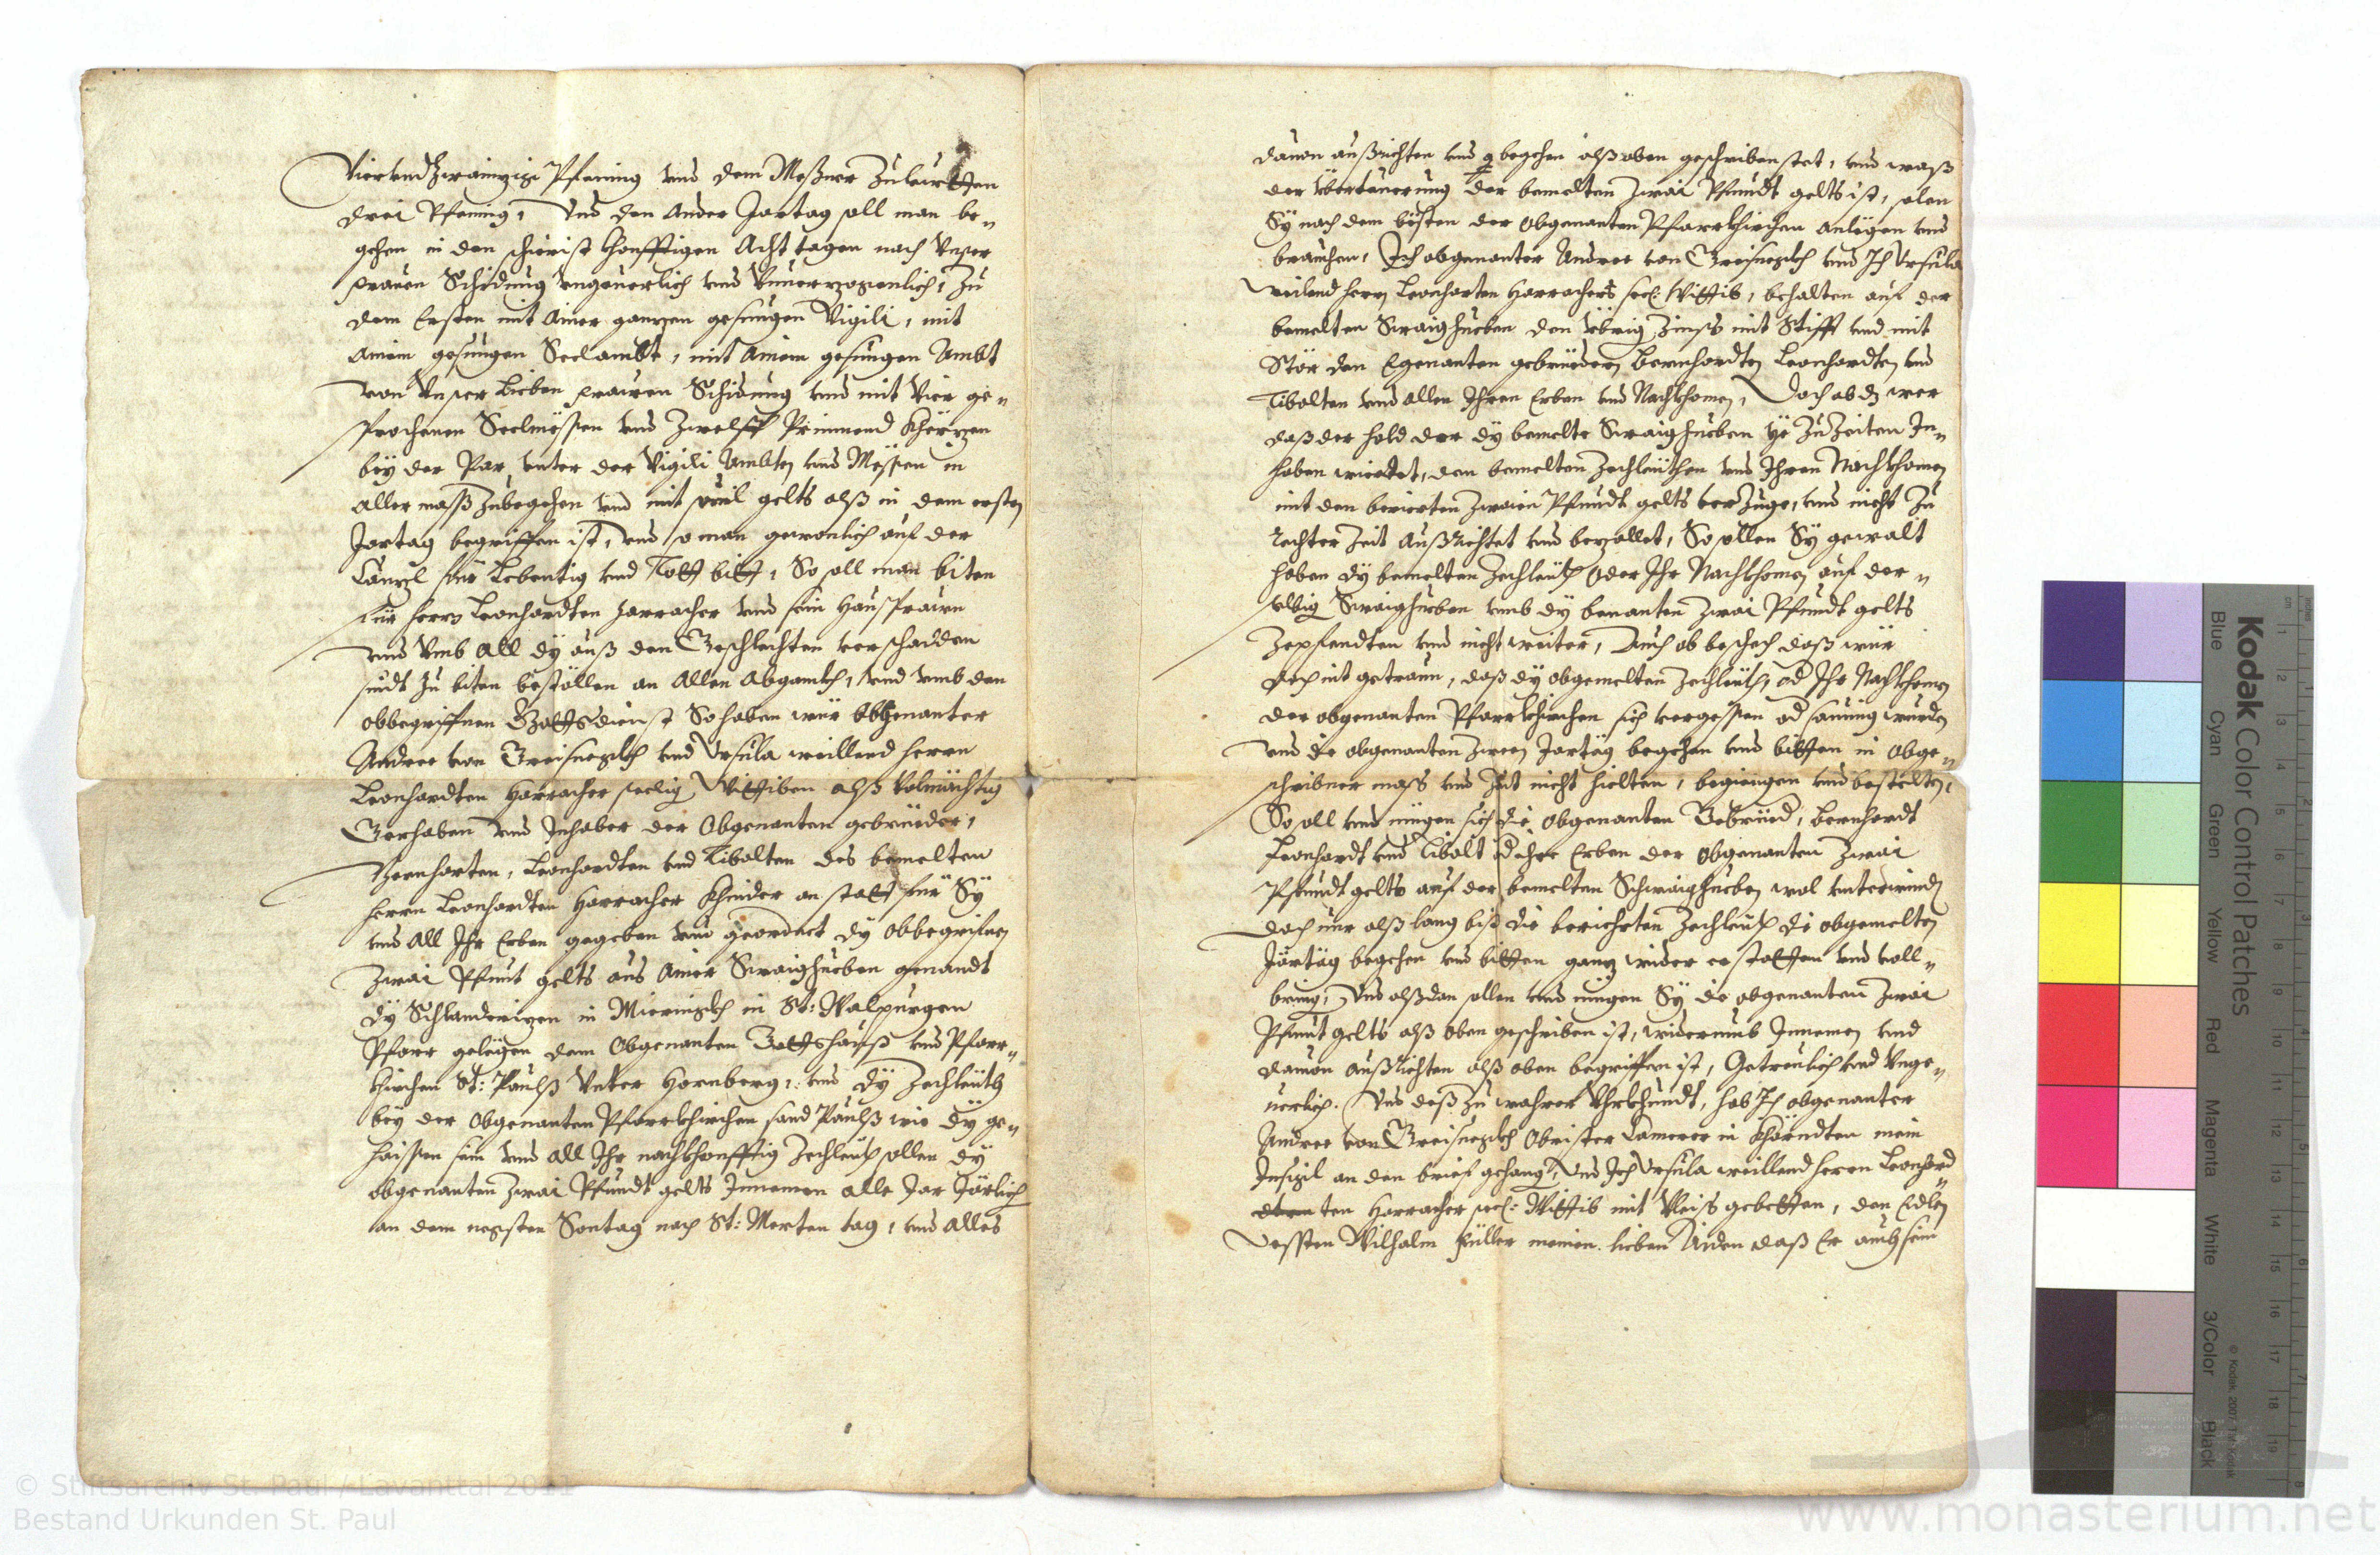 Vierundzwainzig Pfening vnd dem Meßner zuleitten
drei Pfening, Vnd den Ander Jartag soll man be„
gehen in den schierist khonfftigen Acht tagen nach Vnser
frauen Schidung vngeuerlich vnd Vnuerzogenlich, Zu
dem Ersten mit Ainer ganzen gesungen Vigili, mit
Ainem gesungen Seelambt, mit Ainem gesungen Ambt
von Vnser Lieben frawen Schidung vnd mit Vier ge„
sprochenen Seelmessen vnd Zwelff Prinnend Kherzen
bey der Par vnter der Vigili Ambten vnd Messen in
aller mass zubegehen vnd mit souil gelts alß in dem ersten
Jartag begriffen ist, vnd so man gewonlich auf der
Canzl für Lebentig vnd Tott bitt, So soll man biten
für herrn Leonhardten Harracher vnd sein Haussfrawn
vnd Vmb All dy auß den Geschlechten verschaiden
sindt zu biten bestöllen an Allen Abganckh, vnd vmb den
obbegriffnen Gottsdienst So haben wür obgenanter
Andree von Greisnegkh vnd Vrsula weillend herrn
Leonhardten Harracher seelig Wittiben alß Volmächtig
Gerhaben vnd Inhaber der Obgenanten gebrüeder,
Bernharten, Leonhardten vnd Tibolten des bemelten
herrn Leonhardten Harracher Khinder an statt für Sÿ
vnd All Ihr Erben gegeben vnd geordnet dÿ obbegrifnen
Zwai Pfunt gelts aus Ainer Swaighueben genandt
dÿ Schlanderizen in Mieringkh in St: Walpurgen
Pfarr gelegen dem Obgenanten Gottshauß vnd Pfarr„
khirchen St: Paulß Vnter Hornberg, vnd dÿ Zechleuth
bey der Obgenanten Pfarrkhirchen sand Paulß wie dÿ ge„
haissen sein vnd All Ihr nachkhonfftig Zechleuth sollen dÿ
obgenanten Zwai Pfundt gelts Innemen alle Jar Järlich
an dem negsten Sontag nach St: Merten tag, vnd Alles
dauon außrichten vnd begehen alß oben geschriben stet, vnd waß
der Übertäuerung der bemelten Zwai Pfundt gelts ist, solen
Sÿ nach dem besten der Obgenanten Pfarrkhirchen Anlegen vnd
brauchen, Ich obgenanter Andree von Greisnegkh vnd Ich Vrsula
weilend herrn Leonharten Harrachers seel: Wittib, behalten auf der
bemelten Swaighueben den Übrig Zinss mit Stifft vnd mit
Stör den Egenanten gebrüedern Bernhardten Leonhardten vnd
Tibolten vnd allen Ihren Erben vnd Nachkhomen, Doch ob dz wer
daß der hold der dÿ bemelte Swaighueben ÿe Zu Zeiten In„
haben wierdet, den bemelten Zechleuthen vnd Ihren Nachkhomen
mit den berierten Zwaien Pfundt gelts verzuge, vnd nicht zu
rechter Zeit Außrichtet vnd bezallet, So sollen Sÿ gewalt
haben dÿ bemelten Zechleuth Oder Ihr Nachkhomen auf der„
selbig Swaighueben vmb dÿ benanten Zwai Pfundt gelts
Zepfendten vnd nicht weiter, Auch ob beschech daß wür
doch nit getrawn, daß dÿ obgemelten Zechleuth, od Ihr Nachkhomen
der obgenanten Pfarrkhirchen sich vergessen od saumig wurden
vnd die obgenanten Zween Jartäg begehen vnd bitten in obge„
schribner mass vnd Zeit nicht hielten, begiengen vnd bestelten,
So soll vnd mügen sich die obgenanten Gebrüed, Bernhardt
Leonhardt vnd Tibolt od ihre Erben der obgenanten Zwai
Pfundt gelts auf der bemelten Schwaighueben wol vnterwinden
doch nur alß lang biß die berierten Zechleuth die obgemelten
Jartäg begehen vnd bitten ganz wider erstatten vnd voll„
bring, Vnd alßdan sollen vnd mügen Sÿ die obgenanten Zwai
Pfunt gelts alß oben geschriben ist, widerumb Innemen vnd
dauon außrichten alß oben begriffen ist, Getreulich vnd Vnge„
uerlich. Vnd deß zu wahrer Vhrkhundt, hab Ich obgenanter
Andree von Greisnegkh Obrister Camerer in Khärndten mein
Insigil an den brieff gehang, Vnd Ich Vrsula weillend herrn Leonhard„
ten Harracher seel: Wittib mit Vleiss gebetten, den Edlen
Vessten Wilhalm füller meinen lieben Aiden daß Er auch sein
© Stiftsarchiv St. Paul / Lavanttal 2011
Bestand Urkunden St. Paul
www.monasterium.net
Kodak Color Control Patches
© Kodak, 2007 TM: Kodak
Blue Cyan Green Yellow Red Magenta White 3/Color Black